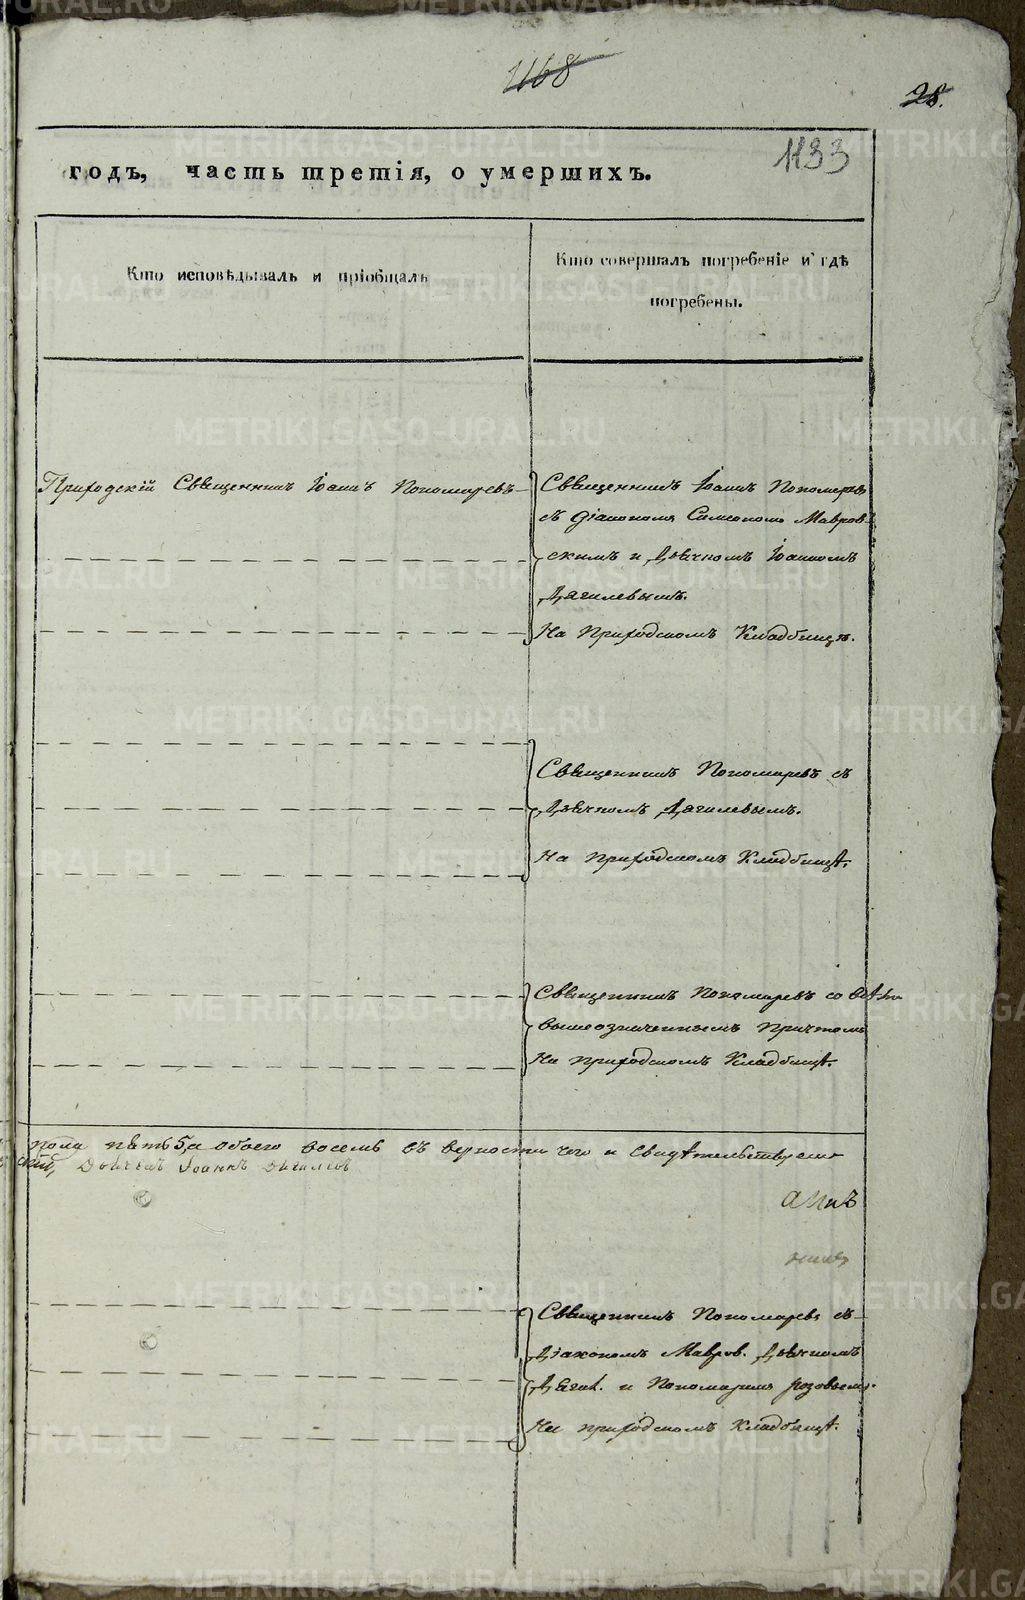 1168
28.
1133
годъ, часть третія, о умершихъ.
Кто исповѣдывалъ и пріобщалъ
Кто совершалъ погребеніе и гдѣ
погребены.
Приходскій Священникъ Іоаннъ Пономаревъ
Священникъ Іоаннъ Пономаревъ
съ Діакономъ Симеономъ Мавров-
скимъ и Дьячкомъ Іоанномъ
Дягилевымъ.
На Приходскомъ Кладбищѣ.
Священникъ Пономаревъ съ
Дьячкомъ Дягилевымъ.
На приходскомъ Кладбищѣ.
Священникъ Пономаревъ со всѣмъ
вышеозначеннымъ Причтомъ
На приходскомъ Кладбищѣ.
пола пять 5, а обоего восемь въ верности чего и свидѣтельствуемъ
Дьячекъ Іоаннъ Дягилевъ
Священникъ Пономаревъ съ
Діакономъ Мавров. Дьячкомъ
Дягил. и Пономаремъ Розовымъ.
На приходскомъ Кладбищѣ.
METRIKI.GASO-URAL.RU